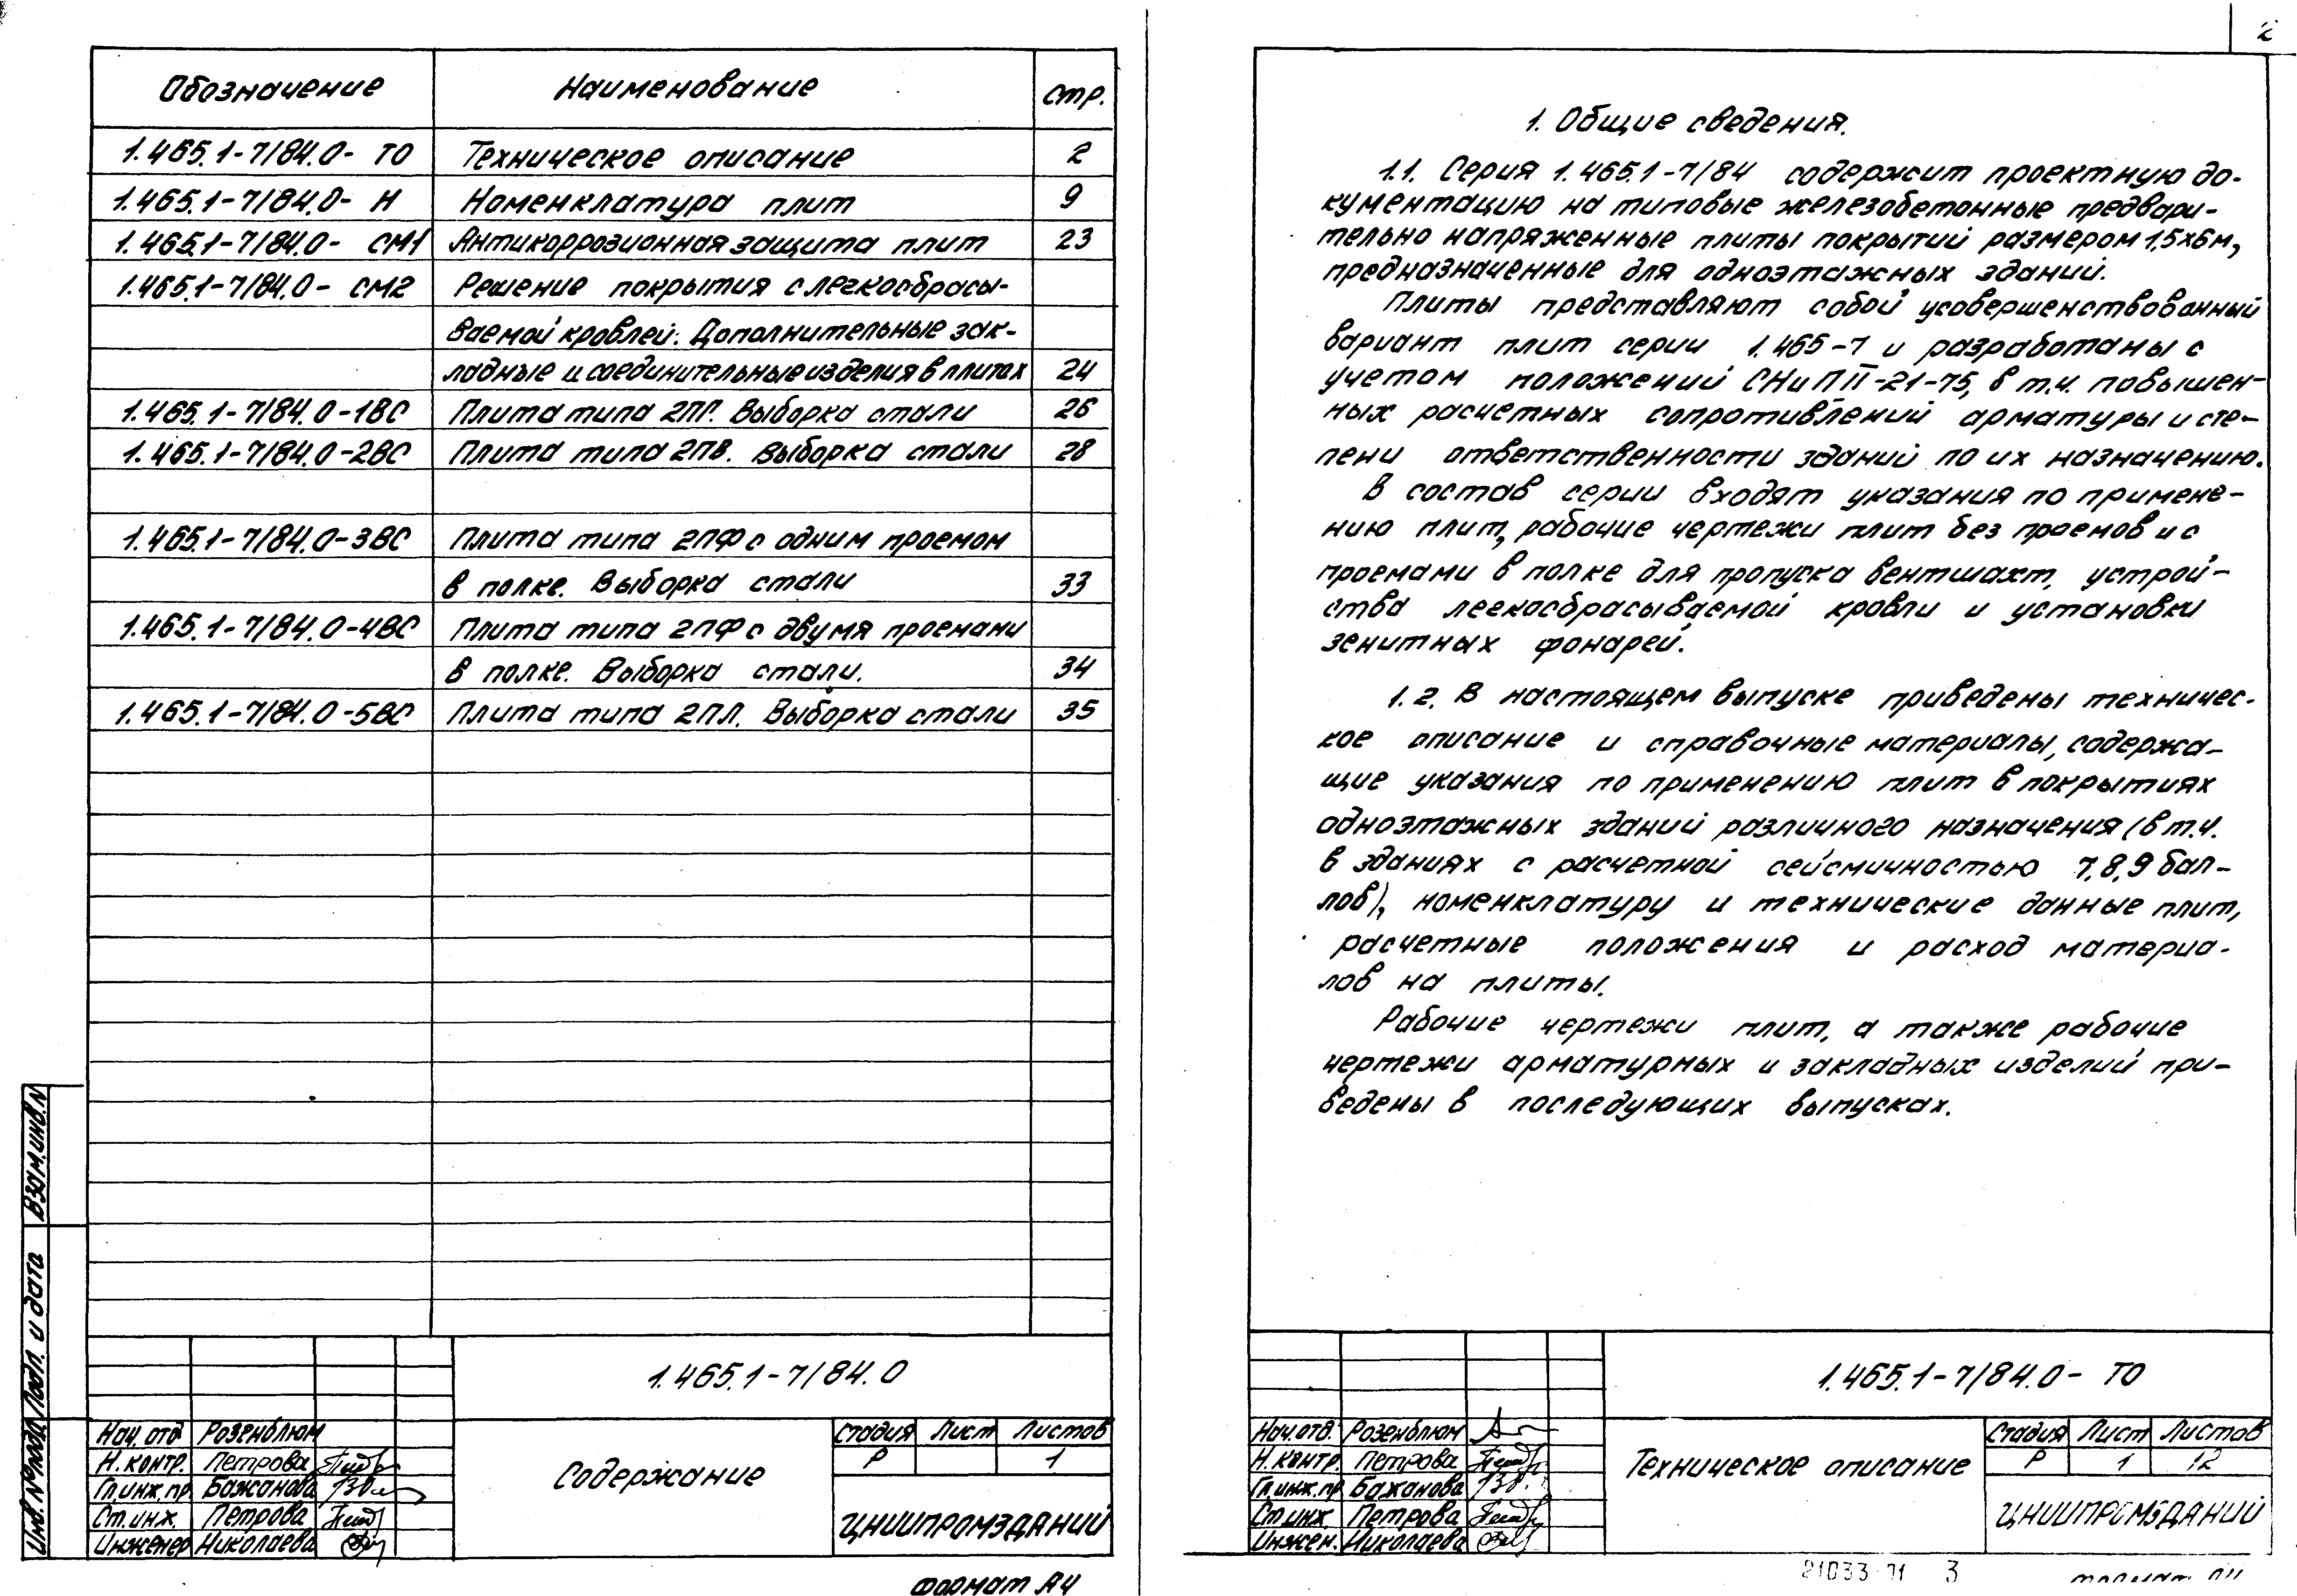 Обозначение Наименование стр.
1.465.1-7/84.0- ТО Техническое описание 2
1.465.1-7/84.0- Н Номенклатура плит 9
1.465.1-7/84.0- СМ1 Антикоррозионная защита плит 23
1.465.1-7/84.0- СМ2 Решение покрытия с легкосбрасы-
ваемой кровлей. Дополнительные зак-
ладные и соединительные изделия в плитах 24
1.465.1-7/84.0-1ВС Плита типа 2ПГ. Выборка стали 26
1.465.1-7/84.0-2ВС Плита типа 2ПВ. Выборка стали 28
1.465.1-7/84.0-3ВС Плита типа 2ПФ с одним проемом
в полке. Выборка стали 33
1.465.1-7/84.0-4ВС Плита типа 2ПФ с двумя проемами
в полке. Выборка стали. 34
1.465.1-7/84.0-5ВС Плита типа 2ПЛ. Выборка стали 35
Взам.инв.N
Подп. и дата
Инв.№подл.
1.465.1-7/84.0
Нач. отд Розенблюм
Н.контр. Петрова
Гл.инж.пр Бажанова
Ст.инж. Петрова
Инженер Николаева
Содержание
Стадия Лист Листов
Р 1
ЦНИИПРОМЗДАНИЙ
Формат А4
2
1. Общие сведения.
1.1. Серия 1.465.1-7/84 содержит проектную до-
кументацию на типовые железобетонные предвари-
тельно напряженные плиты покрытий размером 1,5х6м,
предназначенные для одноэтажных зданий.
Плиты представляют собой усовершенствованный
вариант плит серии 1.465-7 и разработаны с
учетом положений СНиП II-21-75, в т.ч. повышен-
ных расчетных сопротивлений арматуры и сте-
пени ответственности зданий по их назначению.
В состав серии входят указания по примене-
нию плит, рабочие чертежи плит без проемов и с
проемами в полке для пропуска вентшахт, устрой-
ства легкосбрасываемой кровли и установки
зенитных фонарей.
1.2. В настоящем выпуске приведены техничес-
кое описание и справочные материалы, содержа-
щие указания по применению плит в покрытиях
одноэтажных зданий различного назначения (в т.ч.
в зданиях с расчетной сейсмичностью 7,8,9 бал-
лов), номенклатуру и технические данные плит,
расчетные положения и расход материа-
лов на плиты.
Рабочие чертежи плит, а также рабочие
чертежи арматурных и закладных изделий при-
ведены в последующих выпусках.
1.465.1-7/84.0- ТО
Нач.отд. Розенблюм
Н.контр. Петрова
Гл.инж.пр Бажанова
Ст.инж. Петрова
Инжен. Николаева
Техническое описание
Стадия Лист Листов
Р 1 12
ЦНИИПРОМЗДАНИЙ
21033-01 3